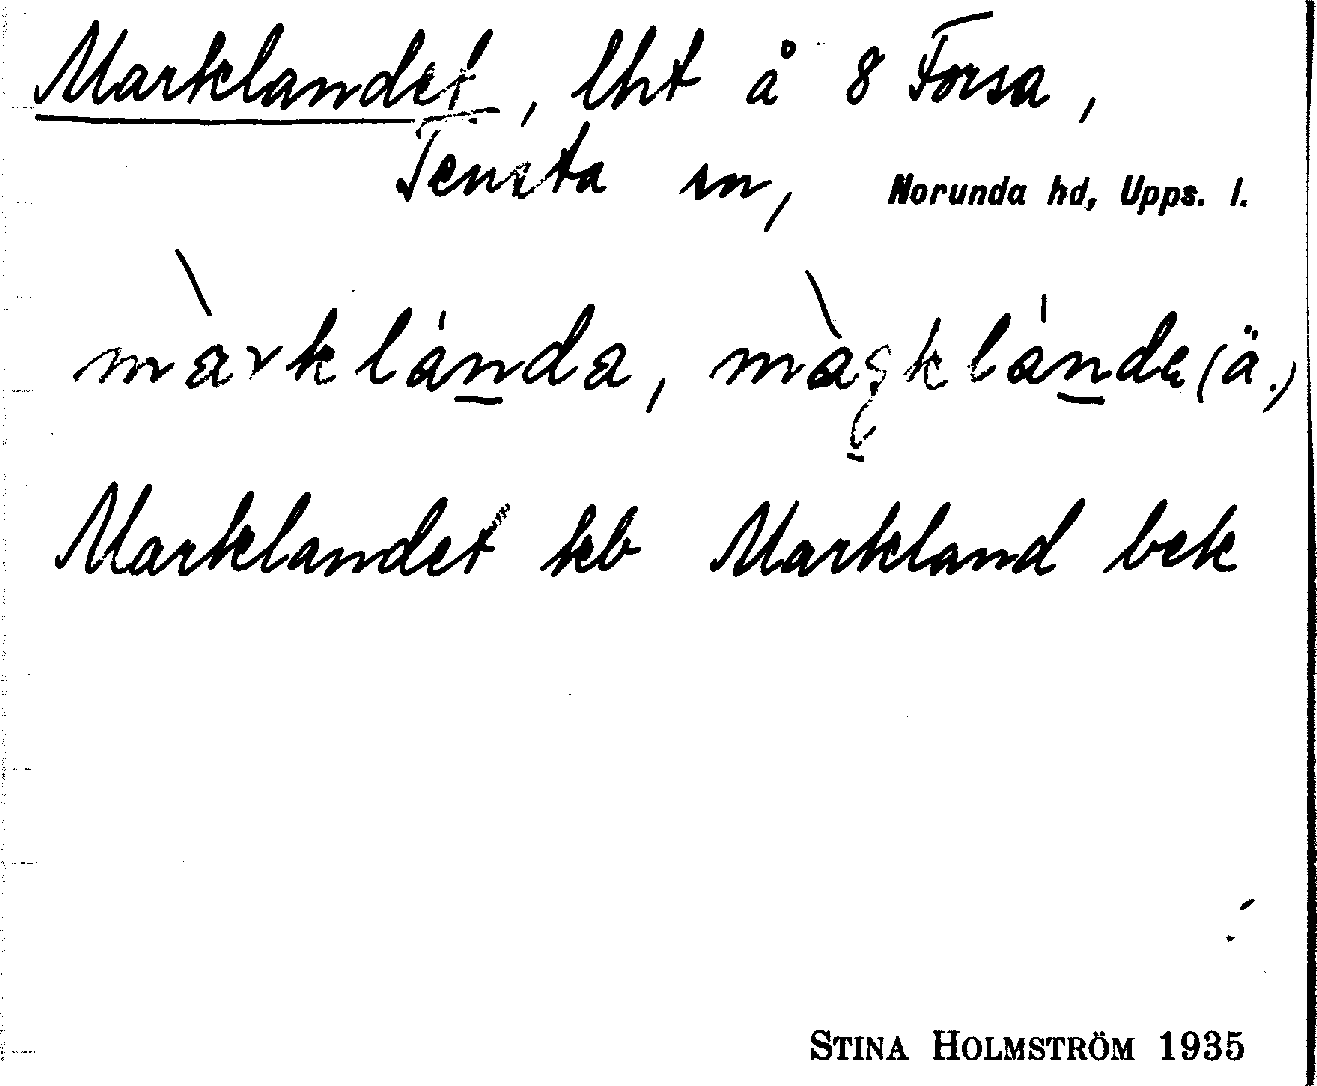 Marklandet, lht å 8 Forsa,
Tensta sn, Norunda hd, Upps. l.
màrklánda, màgklánde (ä.)
Marklandet kb Markland bek
STINA HOLMSTRÖM 1935